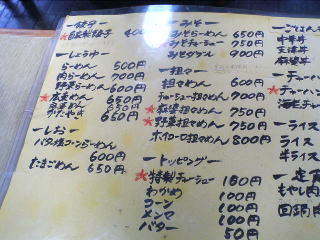 一餃子
★自家製餃子 400
一しょうゆ
らーめん 500円
肉らーめん 700円
野菜らーめん 600円
★広東めん 650円
650円
650円
一しお
バター塩コーンらーめん
600円
たまごめん 650円
一みそ
みそらーめん 650円
みそチャーシュー 750円
みそワンタン 900円
一担々
担々めん 600円
チャーシュー担々めん 700円
★麻婆担々めん 750円
★野菜担々めん 750円
ホイコーロ担々めん 800円
一トッピング
★特製チャーシュー 150円
わかめ 100円
コーン 100円
メンマ 100円
バター 50円
一ごはん
中華丼
天津丼
麻婆丼
一チャーハン
★チャーハン
海老チャー
一ライス
ライス
半ライス
一定食
もやし肉
回鍋肉